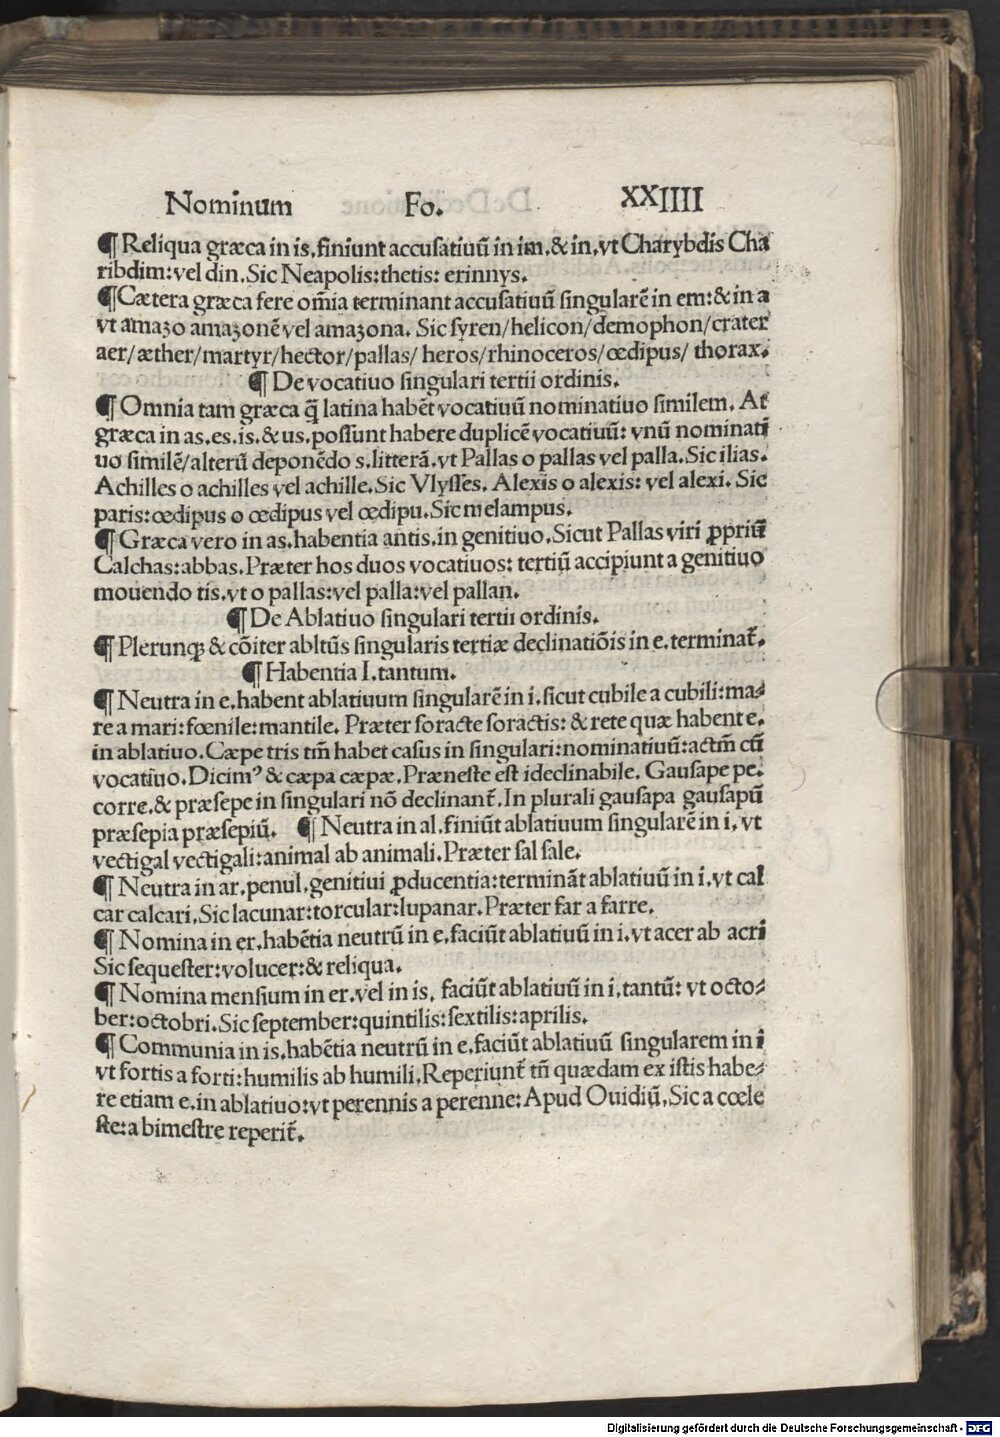 Nominum Fo. XXIIII
¶ Reliqua græca in is. finiunt accuſatiuũ in im. & in. vt Charybdis Cha
ribdim: vel din. Sic Neapolis: thetis: erinnys.
¶ Cætera græca fere om̃ia terminant accuſatiuũ ſingularẽ in em: & in a
vt amaʒo amaʒonẽ vel amaʒona. Sic ſyren/helicon/demophon/crater
aer/æther/martyr/hector/pallas/ heros/rhinoceros/œdipus/ thorax.
¶ De vocatiuo ſingulari tertii ordinis.
¶ Omnia tam græca q̃ latina habẽt vocatiuũ nominatiuo ſimilem. At
græca in as. es. is. & us. poſſunt habere duplicẽ vocatiuũ: vnũ nominati
uo ſimilẽ/alterũ deponẽdo s. litterã. vt Pallas o pallas vel palla. Sic ilias.
Achilles o achilles vel achille. Sic Vlyſſes. Alexis o alexis: vel alexi. Sic
paris: œdipus o œdipus vel œdipu. Sic melampus.
¶ Græca vero in as. habentia antis. in genitiuo. Sicut Pallas viri ꝓpriũ
Calchas: abbas. Præter hos duos vocatiuos: tertiũ accipiunt a genitiuo
mouendo tis. vt o pallas: vel palla: vel pallan.
¶ De Ablatiuo ſingulari tertii ordinis.
¶ Plerunqꝫ & cõiter abltũs ſingularis tertiæ declinatiõis in e. terminat̃.
¶ Habentia I. tantum.
¶ Neutra in e. habent ablatiuum ſingularẽ in i. ſicut cubile a cubili: ma⸗
re a mari: fœnile: mantile. Præter ſoracte ſoractis: & rete quæ habent e.
in ablatiuo. Cæpe tris tm̃ habet caſus in ſingulari: nominatiuũ: actm̃ cũ
vocatiuo. Dicimꝰ & cæpa cæpæ. Præneſte eſt ĩdeclinabile. Gauſape pe.
corre. & præſepe in ſingulari nõ declinant̃. In plurali gauſapa gauſapũ
præſepia præſepiũ. ¶ Neutra in al. finiũt ablatiuum ſingularẽ in i. vt
vectigal vectigali: animal ab animali. Præter ſal ſale.
¶ Neutra in ar. penul. genitiui ꝓducentia: terminãt ablatiuũ in i. vt cal
car calcari. Sic lacunar: torcular: lupanar. Præter far a farre.
¶ Nomina in er. habẽtia neutrũ in e. faciũt ablatiuũ in i. vt acer ab acri
Sic ſequeſter: volucer: & reliqua.
¶ Nomina menſium in er. vel in is. faciũt ablatiuũ in i. tantũ: vt octo⸗
ber: octobri. Sic ſeptember: quintilis: ſextilis: aprilis.
¶ Communia in is. habẽtia neutrũ in e. faciũt ablatiuũ ſingularem in i
vt fortis a forti: humilis ab humili. Reperiunt̃ tñ quædam ex iſtis habe⸗
re etiam e. in ablatiuo: vt perennis a perenne: Apud Ouidiũ. Sic a cœle
ſte: a bimeſtre reperit̃.
Digitalisierung gefördert durch die Deutsche Forschungsgemeinschaft - DFG